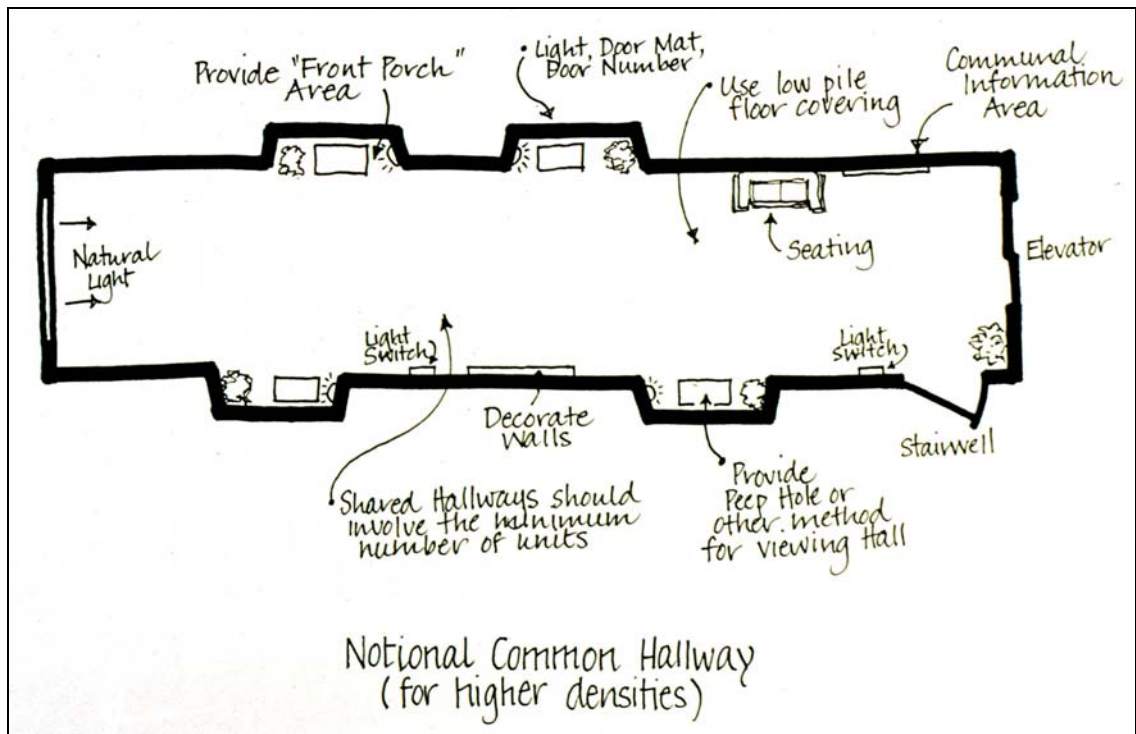 Provide "Front Porch"
Area
Light, Door Mat,
Door Number
Use low pile
floor covering
Communal
Information
Area
Natural
Light
Seating
Elevator
Light
Switch
Light
Switch
Decorate
Walls
Stairwell
Shared Hallways should
involve the minimum
number of units
Provide
Peep Hole or
other method
for viewing Hall
Notional Common Hallway
(for higher densities)